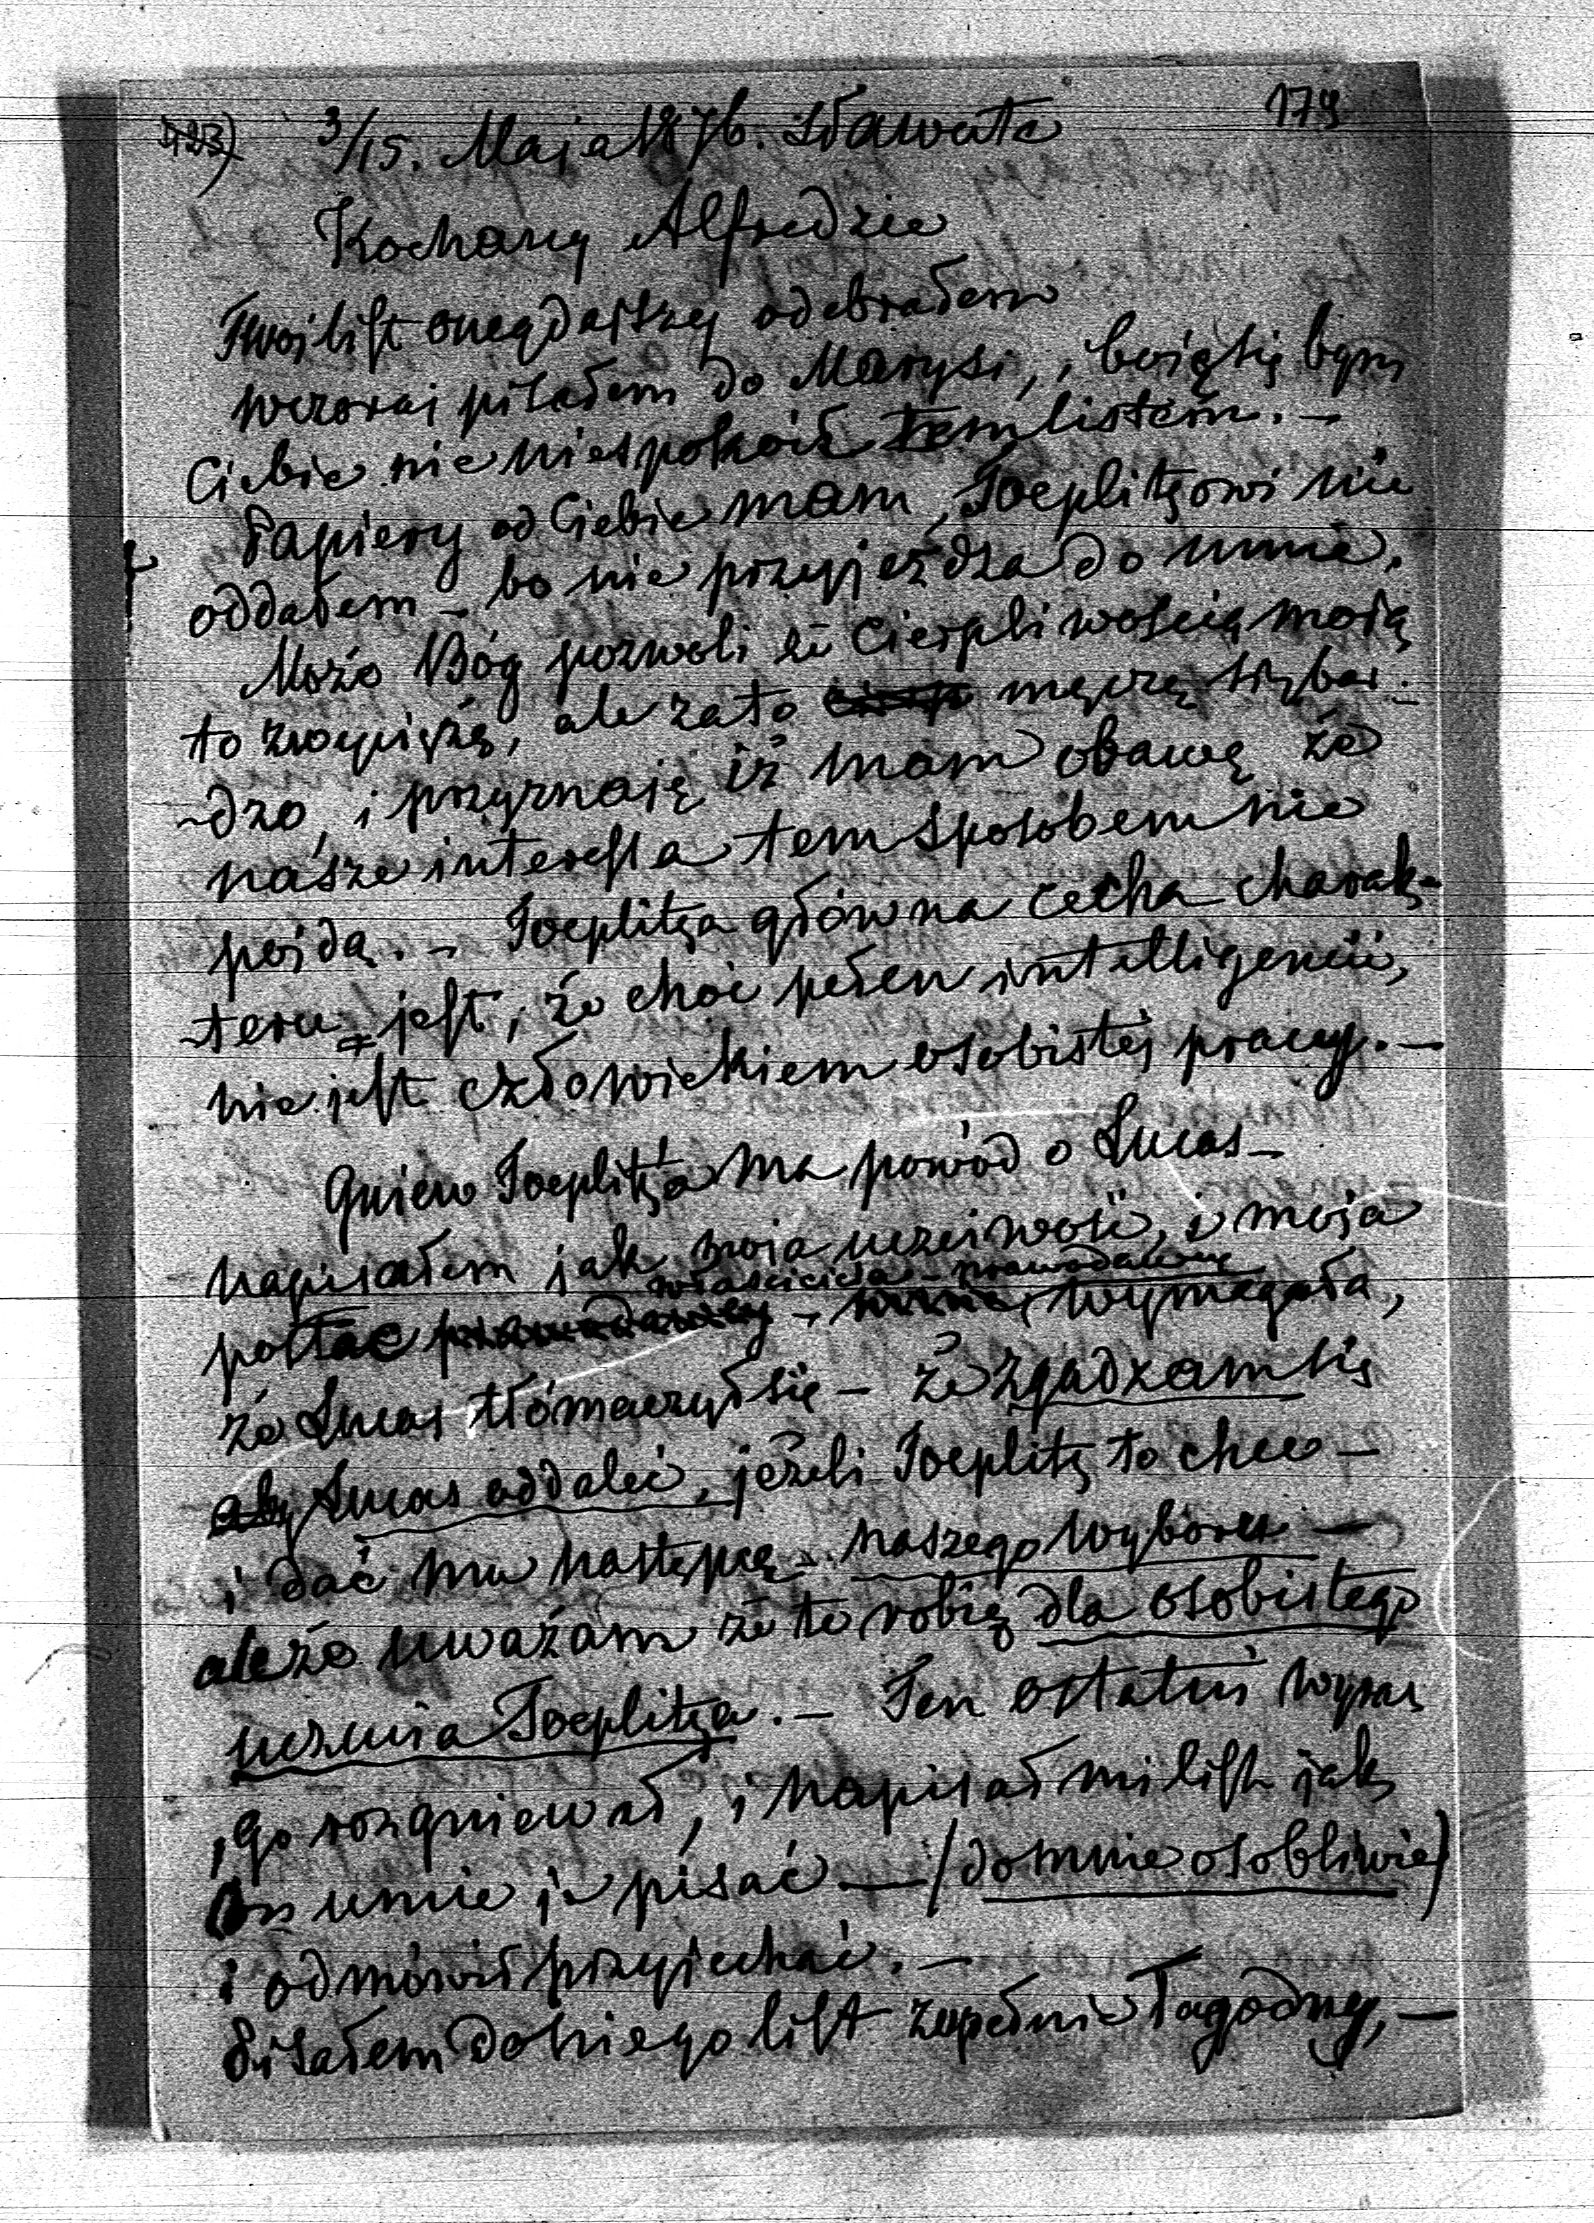 123) 3/15. Maja 1876. Sławuta 179
Kochany Alfredzie
Twój list onegdajszy odebrałem
wczoraj pisałem do Marysi, boię się bym
Ciebie nie niespokoił tem listem. —
Papiery od Ciebie mam, Toeplitzowi nie
oddałem – bo nie przyjeżdża do mnie.
Może Bóg pozwoli że cierpliwością moją
to zwyciężę, ale zato męczę się bar-
-dzo, i przyznaję iż mam obawę że
nasze interessa tem sposobem nie
pójdą. – Toeplitza główna cecha charak-
-teru jest, że choć pełen intelligencii,
nie jest człowiekiem osobistéj pracy. —
Gniew Toeplitza ma powód o Lucas –
napisałem jak moja uczciwość, i moja
właściciela – prawodawcę
postać wymagała,
że Lucas tłómaczył się – że zgadzam się
aby Lucas oddalić, jeżeli Toeplitz to chce –
i dać mu następcę – naszego wyboru —
ale że uważam że to robię dla osobistego
uczucia Toeplitza. – Ten ostatni wyraz
go rozgniewał, i napisał mi list jak
On umie je pisać — (do mnie osobliwie)
i odmówił przyjechać. —
Pisałem do niego list zupełnie łagodny, —